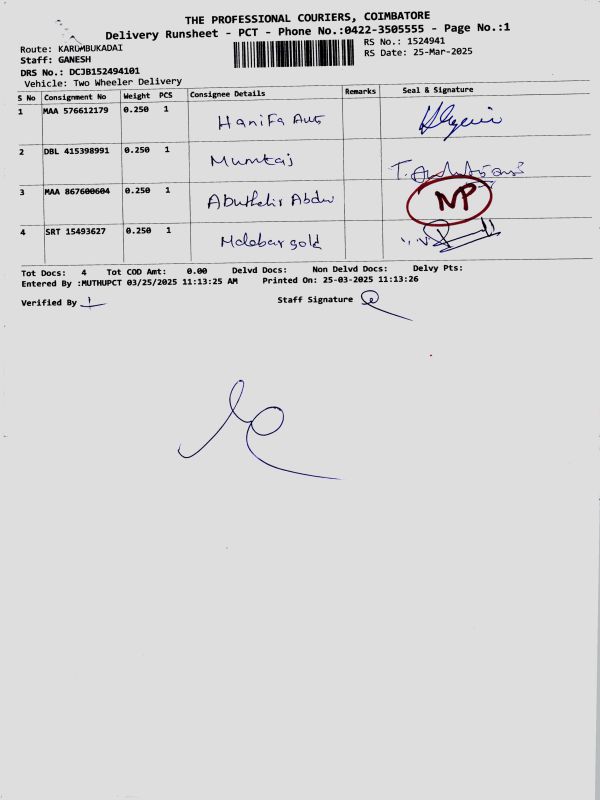 THE PROFESSIONAL COURIERS, COIMBATORE
Delivery Runsheet - PCT - Phone No.:0422-3505555 - Page No.:1
Route: KARUMBUKADAI RS No.: 1524941
Staff: GANESH RS Date: 25-Mar-2025
DRS No.: DCJB152494101
Vehicle: Two Wheeler Delivery
S No Consignment No Weight PCS Consignee Details Remarks Seal & Signature
1 MAA 576612179 0.250 1 Hanifa Auto
2 DBL 415398991 0.250 1 Mumtaj
3 MAA 867600604 0.250 1 NP
4 SRT 15493627 0.250 1 Malabar gold
Tot Docs: 4 Tot COD Amt: 0.00 Delvd Docs: Non Delvd Docs: Delvy Pts:
Entered By :MUTHUPCT 03/25/2025 11:13:25 AM Printed On: 25-03-2025 11:13:26
Verified By Staff Signature